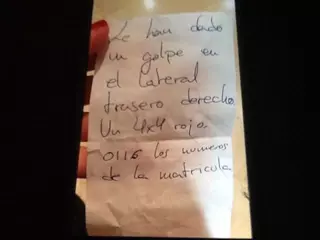 Le han dado
un golpe en
el lateral
trasero derecho
Un 4x4 rojo.
0116 los numeros
de la matricula